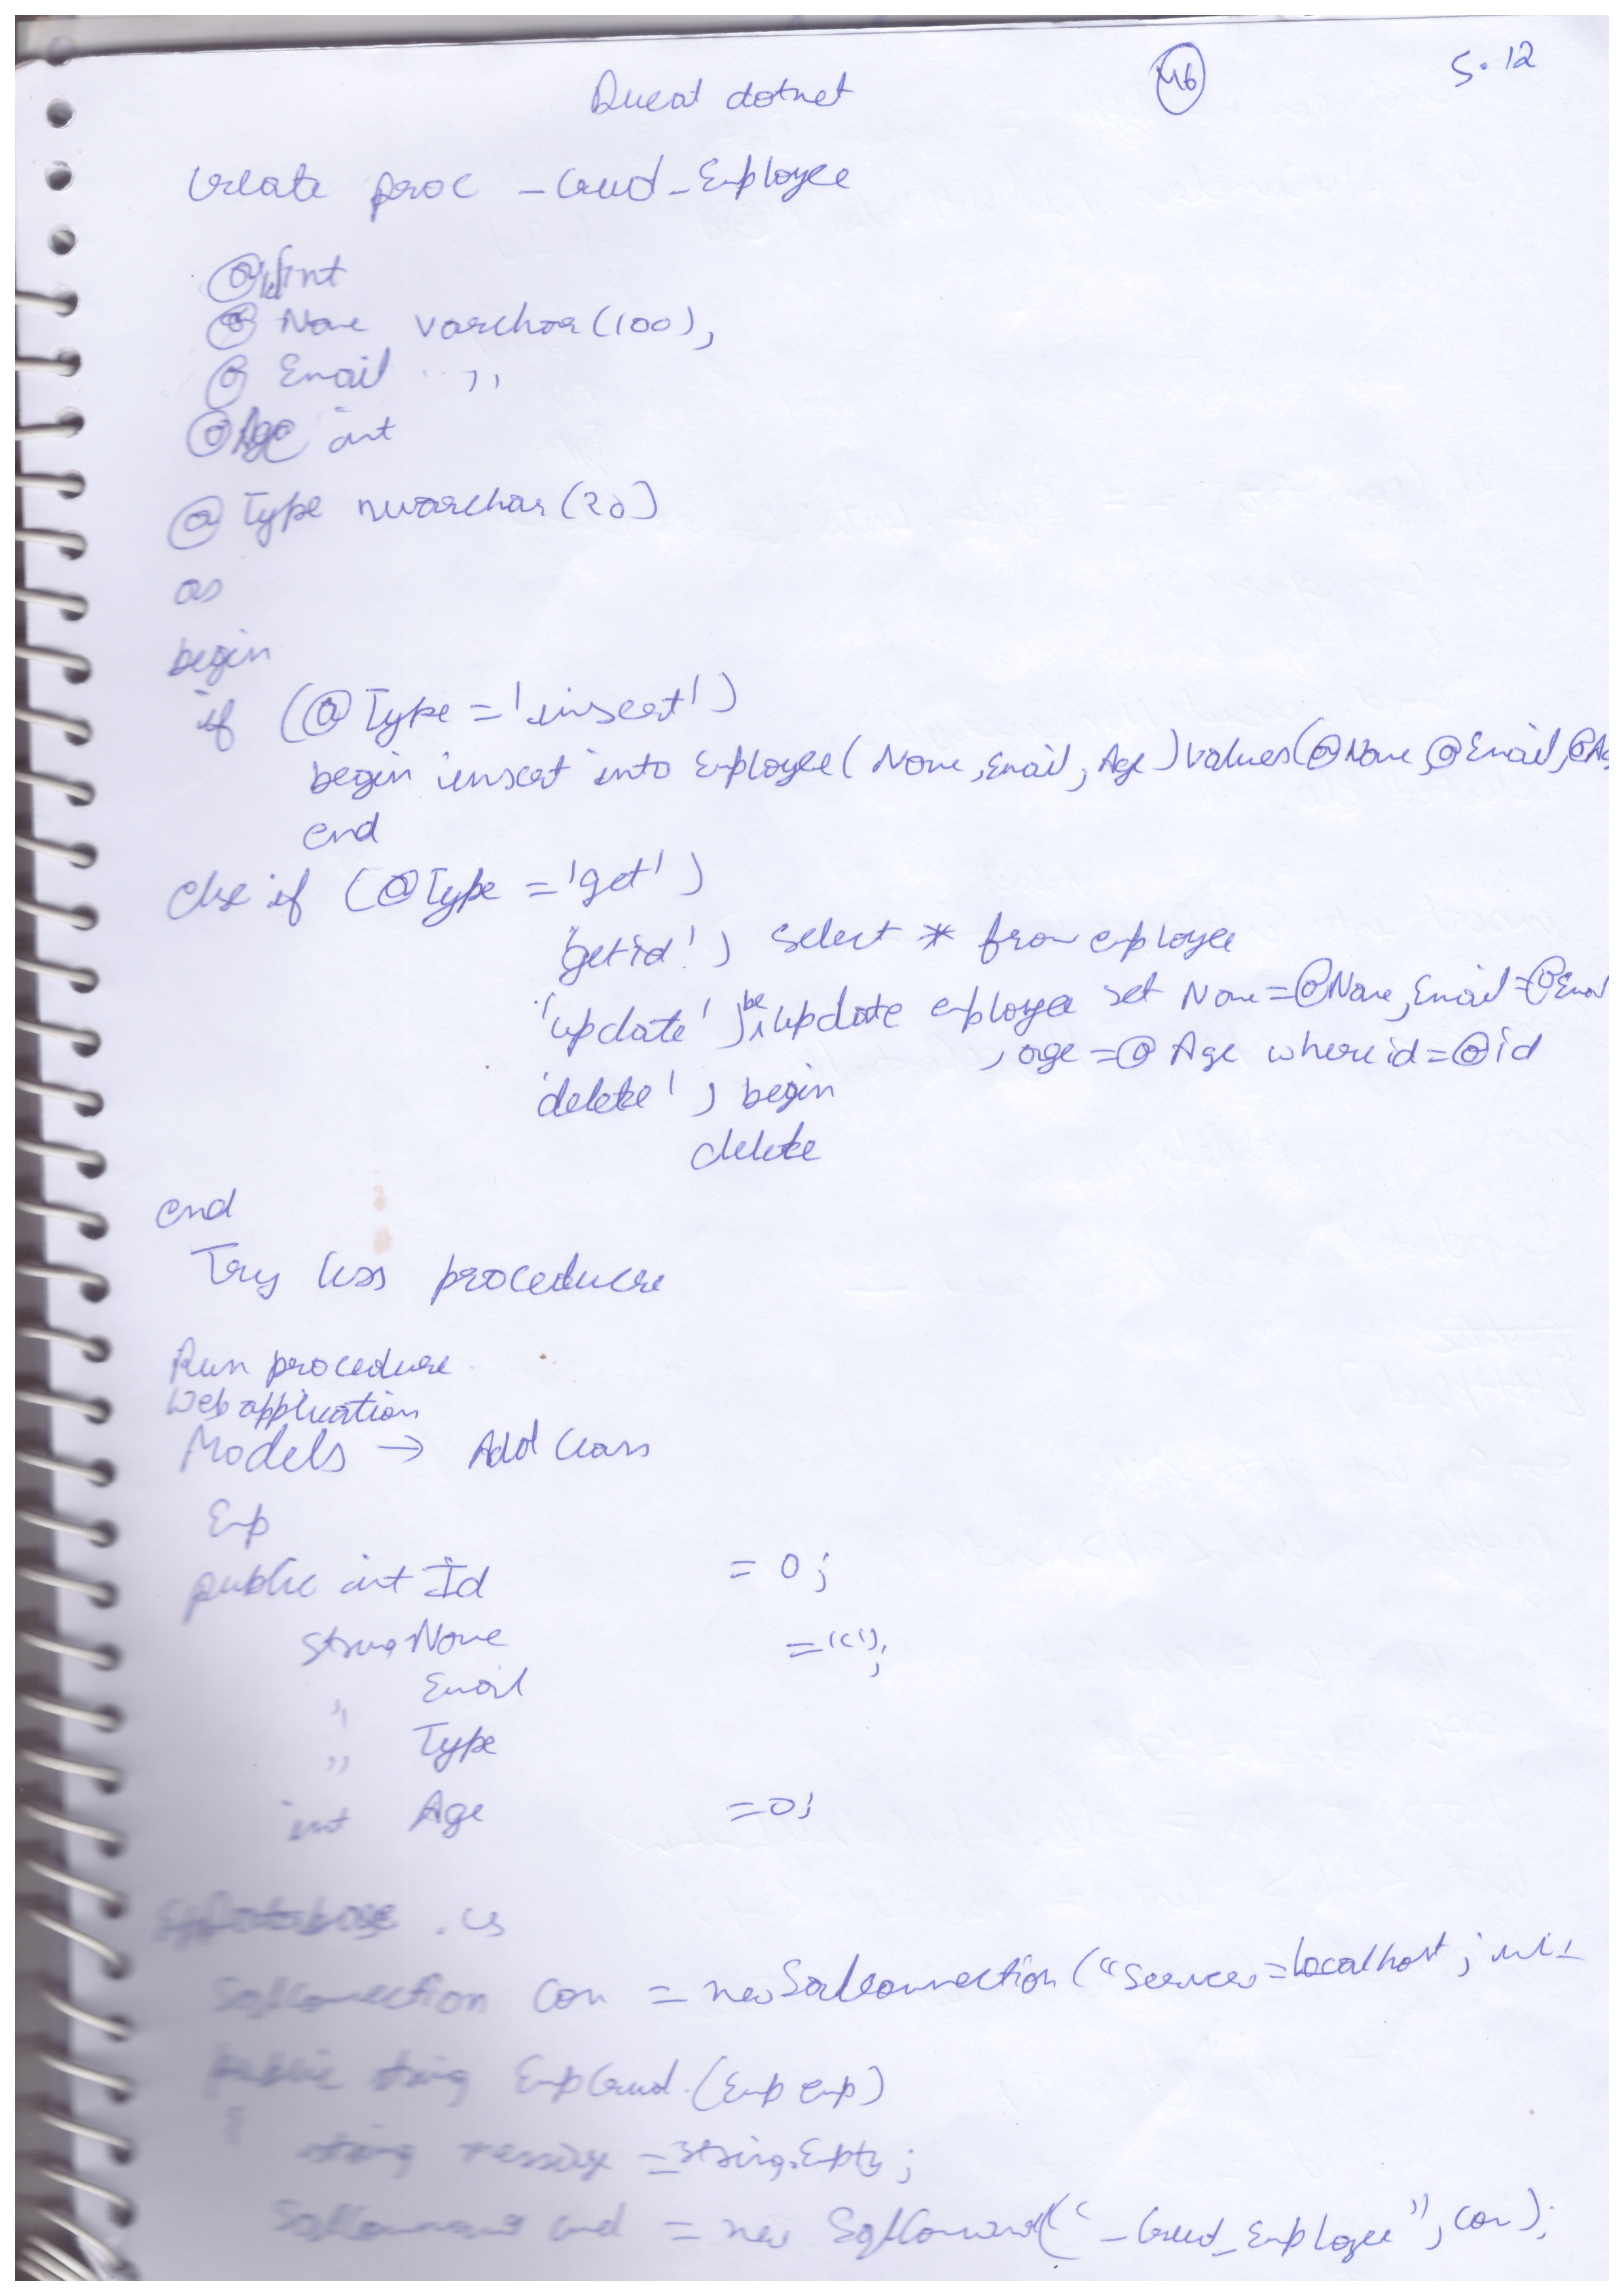 Ducat dotnet 46 5.12
Create proc _Crud_Employee
@id int
@ Name varchar(100),
@ Email ,,
@Age int
@ Type nvarchar(20)
as
begin
if (@Type = 'insert')
begin insert into Employee(Name, Email, Age) values(@Name, @Email, @Ag
end
else if (@Type = 'get')
'getid') select * from employee
'update') be update employee set Name=@Name, Email=@Emai
, age=@Age where id=@id
'delete') begin
delete
end
Try less procedure
Run procedure
Web application
Models → Add Class
Emp
public int Id = 0;
string Name = "";
,, Email
,, Type
int Age =0;
.cs
SqlConnection con = new SqlConnection("Server=localhost;
public string EmpCrud (Emp emp)
{
string message = string.Empty;
SqlCommand cmd = new SqlCommand("_Crud_Employee", con);